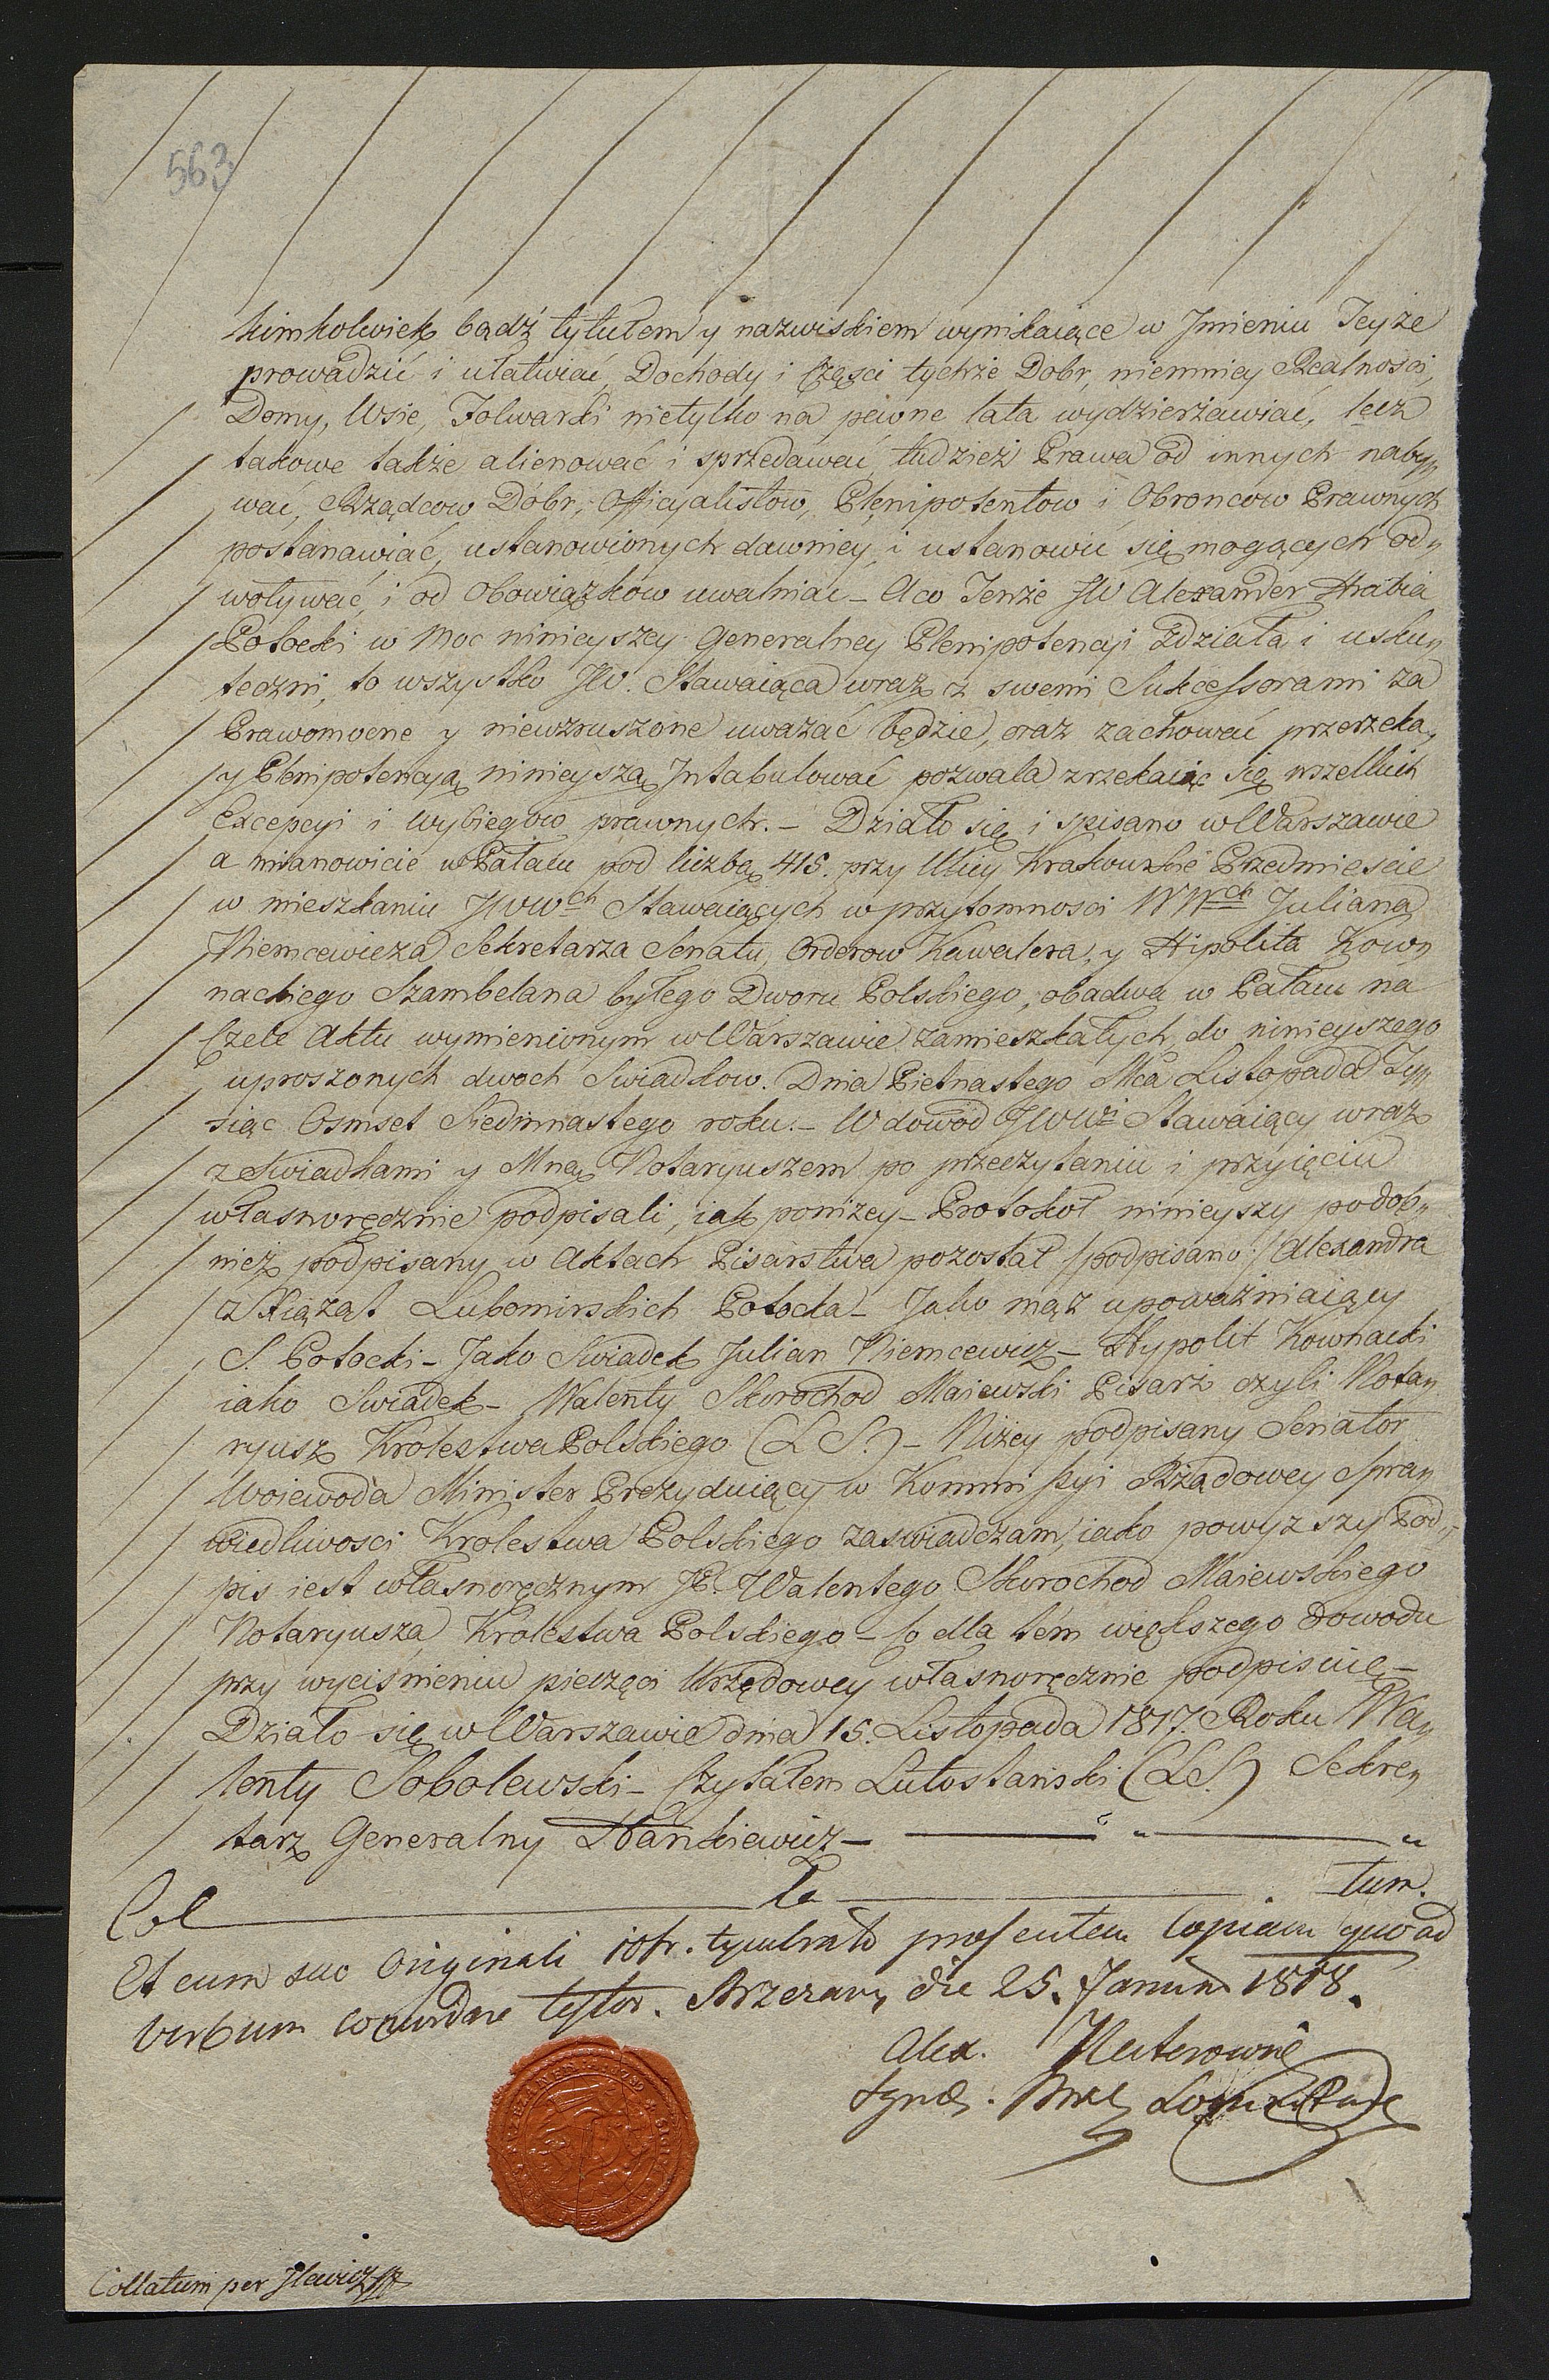 563
kimkolwiek bądź tytułem y nazwiskiem wynikaiące w Jmieniu Teyże
prowadzić i ułatwiać, Dochody i Części tychże Dobr, niemniey Realności,
Domy, Wsie, Folwarki nietylko na pewne lata wydzierżawiać, lecz
takowe także alienować i sprzedawać, tudzież Prawa od innych naby„
wać, Rządcow Dobr, Officyalistow, Plenipotentow i Obroncow Prawnych
postanawiać, ustanowionych dawniey, i ustanowić się mogących od„
woływać, i od Obowiązków uwalniać_ A co Tenże JW Alexander Hrabia
Potocki w Moc ninieyszey Generalney Plenipotencyi zdziała i usku„
teczni, to wszystko JW. Stawaiąca wraz z swemi Sukcessorami za
Prawomocne y niewzruszone uważać będzie, oraz zachować przyrzeka,
y Plenipotencyą ninieyszą Jntabulować pozwala zrzekaiąc się wszelkich
Excepcyi i wybiegów prawnych. _ Działo się i spisano w Warszawie
a mianowicie w Pałacu pod liczbą 415. przy Ulicy Krakowskie Przedmieście
w mieszkaniu JWWch Stawaiących w przytomności WWch Juliana
Niemcewicza Sekretarza Senatu, Orderow Kawalera, y Hipolita Kow„
nackiego Szambelana byłego Dworu Polskiego, obadwa w Pałacu na
Czele Aktu wymienionym w Warszawie zamieszkałych, do ninieyszego
uproszonych dwoch Swiadkow. Dnia Pietnastego Mca Listopada Ty„
siąc Osmset Siedmnastego roku. _ W dowód JWWi Stawaiący wraz
ze Swiadkami y Mną Notaryuszem po przeczytaniu i przyięciu
własnoręcznie podpisali, iak poniżey_ Protokół ninieyszy podob„
nież podpisany w Aktach Pisarstwa pozostał /podpisano:/ Alexandra
z Xiążąt Lubomirskich Potocka_ Jako mąż upoważniaiący
S. Potocki_ Jako Swiadek Julian Niemcewicz_ Hypolit Kownacki
iako Swiadek_ Walenty Skorochod Maiewski Pisarz czyli Nota„
ryusz Krolestwa Polskiego (L S.)_ Niżey podpisany Senator
Woiewoda Minister Prezyduiący w Kommissyi Rządowey Spra„
wiedliwosci Krolestwa Polskiego zaswiadczam, iako powyzszy Pod„
pis iest własnoręcznym JP. Walentego Skorochod Maiewskiego
Notaryusza Krolestwa Polskiego_ Co dla tém większego dowodu
przy wyciśnieniu pieczęci Urzędowey własnoręcznie podpisuię_
Działo się w Warszawie dnia 15. Listopada 1817. Roku Wa„
lenty Sobolewski_ Czytałem Lutostański (L S.) Sekre„
tarz Generalny Hankiewicz_
Col la tum.
Et cum suo Originali 10 fr. tymbrato præsentem Copiam quoad
verbum concordare testor. Brzezany die 25. Januar 1818.
Alex.
Synd.
Collatum per